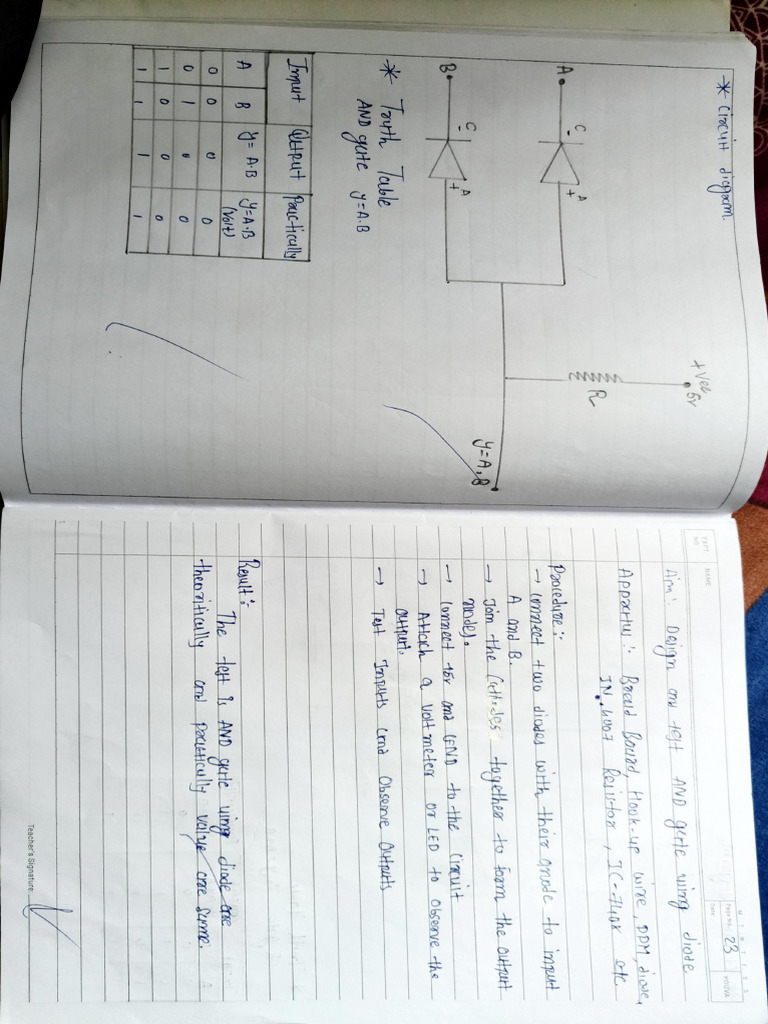 * Circuit diagram.
+Vcc
5v
A
C
A
+
R
B
C
A
+
y=A.B
* Truth Table
AND gate y=A.B
Input Output Practically
A B y=A.B y=A.B
(Volt)
0 0 0 0
0 1 0 0
1 0 0 0
1 1 1 1
EXPT. NO.
NAME
Page No. 23
Date
YOUVA
Aim:- Design and test AND gate using diode
Apparatus:- Bread Board, Hook-up wire, DDM, diode,
IN.4007 Resistor, IC-7408 etc
Procedure:-
→ Connect two diodes with their anode to input
A and B.
→ Join the Cathodes together to form the output
nodes.
→ Connect +5v and GND to the circuit
→ Attach a voltmeter or LED to observe the
output.
→ Test Inputs and Observe Outputs
Result:-
The test is AND gate using diode are
theoritically and practically value are same.
Teacher's Signature: